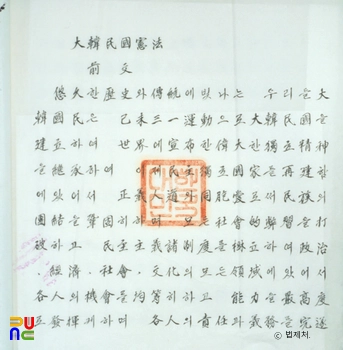 大韓民國憲法
前文
悠久한 歷史와 傳統에 빛나는 우리들 大
韓國民은 己未三一運動으로 大韓民國을
建立하여 世界에 宣布한 偉大한 獨立精神
을 繼承하여 이제 民主獨立國家를 再建함
에 있어서 正義人道와 同胞愛로써 民族의
團結을 鞏固히 하며 모든 社會的 弊習을 打
破하고 民主主義諸制度를 樹立하여 政治
、經濟、社會、文化의 모든 領域에 있어서
各人의 機會를 均等히 하고 能力을 最高度
로 發揮케 하며 各人의 責任과 義務를 完遂
© 법제처.